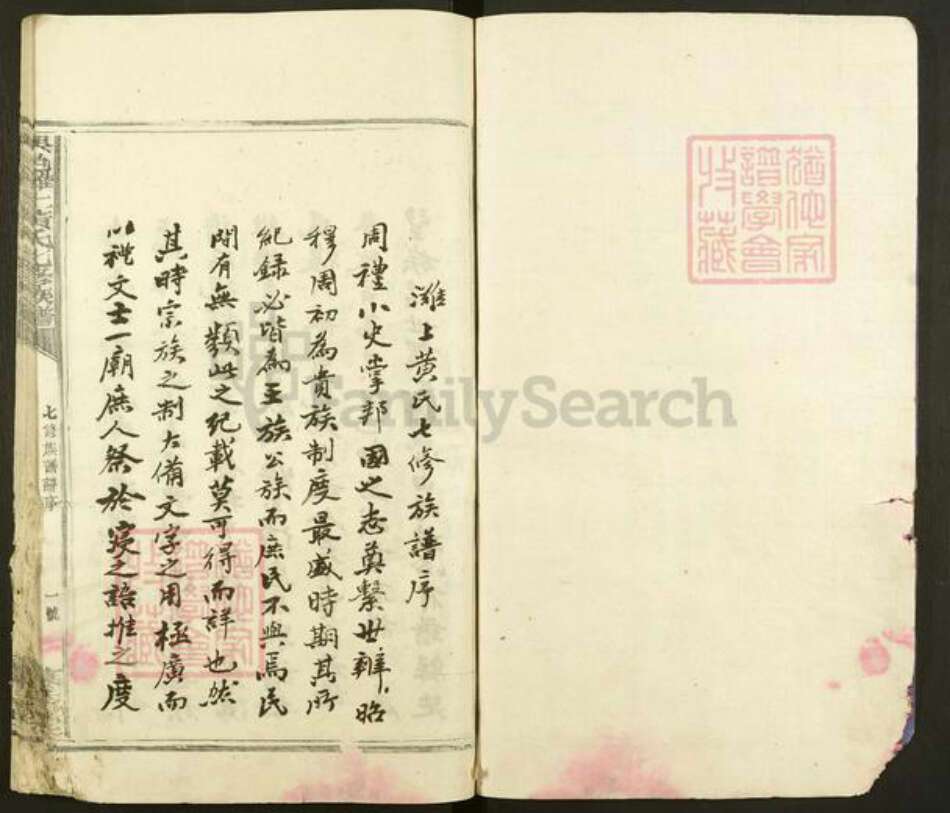 濰上黃氏七修族譜序
周禮小史掌邦國之志奠繫世辨昭
穆周初為貴族制度最盛時期其所
紀錄必皆為王族公族而庶民不與焉民
間有無類此之紀載莫可得而詳也然
其時宗族之制大備文字之用極廣而
以禮文士一廟庶人祭於寢之語推之度
七修族譜譜序
一號
猶他家
譜學會
收藏
FamilySearch